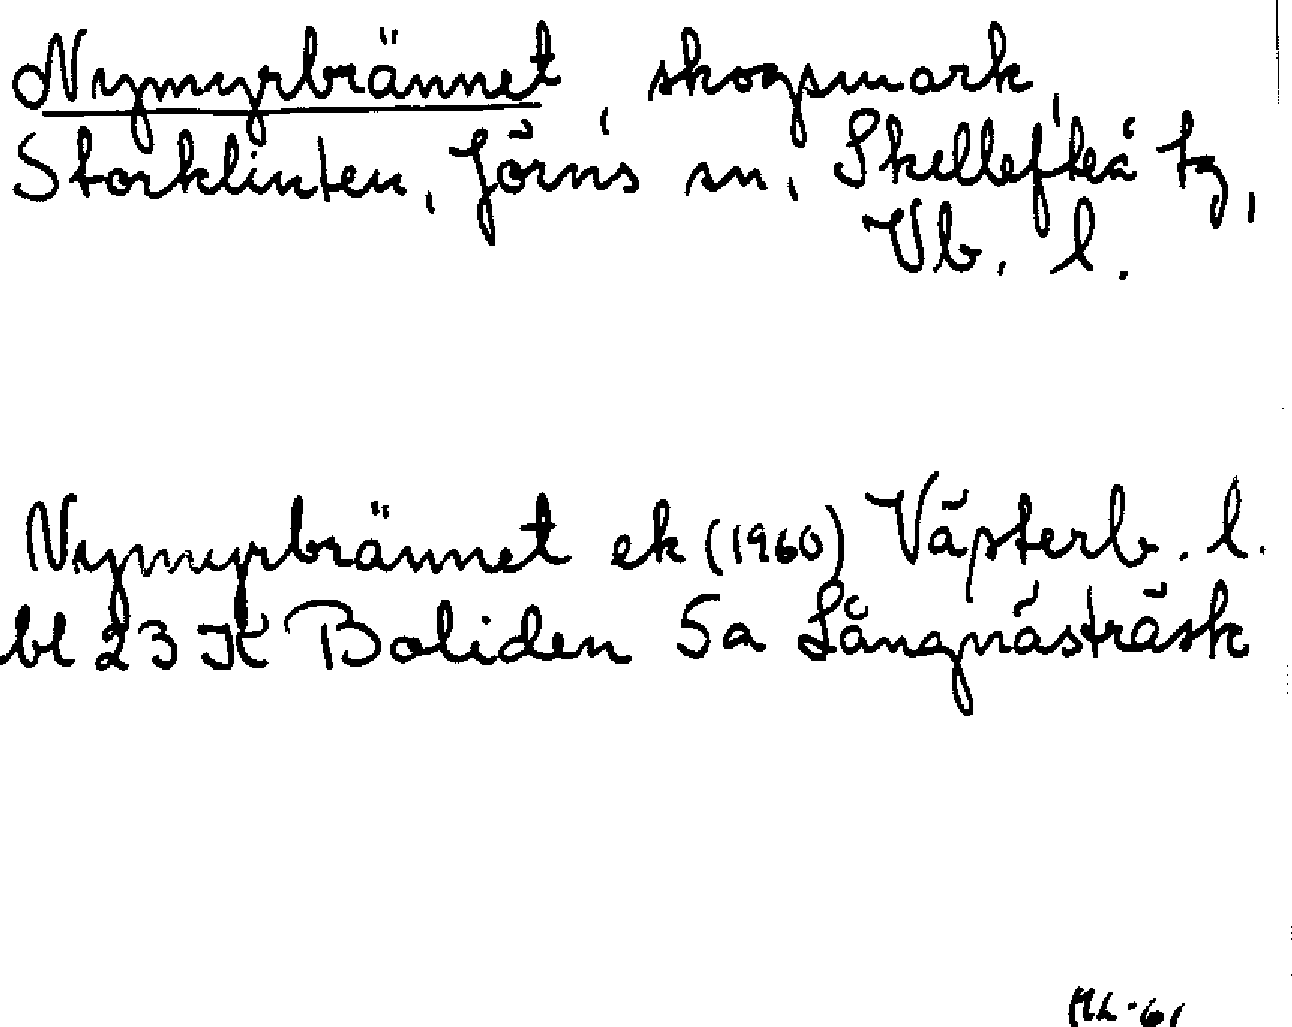 Nymyrbrännet, skogsmark,
Storklinten, Jörns sn, Skellefteå tg,
Vb. l.
Nymyrbrännet ek (1960) Västerb. l.
bl 23 K Boliden 5a Långnästräsk
HL-61